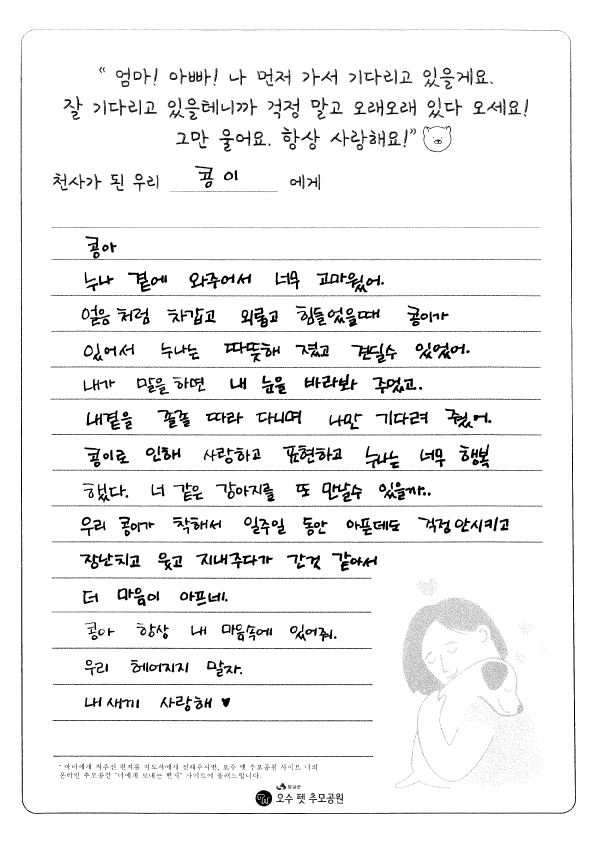 “ 엄마! 아빠! 나 먼저 가서 기다리고 있을게요.
잘 기다리고 있을테니까 걱정 말고 오래오래 있다 오세요!
그만 울어요. 항상 사랑해요!”
천사가 된 우리 콩이 에게
콩아
누나 곁에 와주어서 너무 고마웠어.
얼음처럼 차갑고 외롭고 힘들었을때 콩이가
있어서 누나는 따뜻해 졌고 견딜수 있었어.
내가 말을하면 내 눈을 바라봐 주었고.
내곁을 졸졸 따라 다니며 나만 기다려 줬어.
콩이로 인해 사랑하고 표현하고 누나는 너무 행복
했다. 너 같은 강아지를 또 만날수 있을까..
우리 콩이가 착해서 일주일 동안 아픈데도 걱정안시키고
장난치고 웃고 지내주다가 간것 같아서
더 마음이 아프네.
콩아 항상 내 마음속에 있어줘.
우리 헤어지지 말자.
내새끼 사랑해 ♥
* 아이에게 써주신 편지를 지도사에게 전해주시면, 오수 펫 추모공원 사이트 내의
온라인 추모공간 "너에게 보내는 편지" 사이트에 올려드립니다.
임실군
오수 펫 추모공원